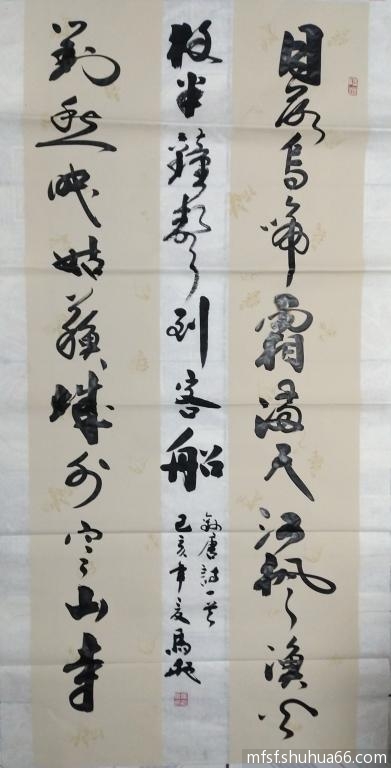 月落烏啼霜滿天江楓漁火
對愁眠姑蘇城外寒山寺
夜半鐘聲到客船
錄唐詩一首
己亥夏馬
mfsf.shuhua66.com